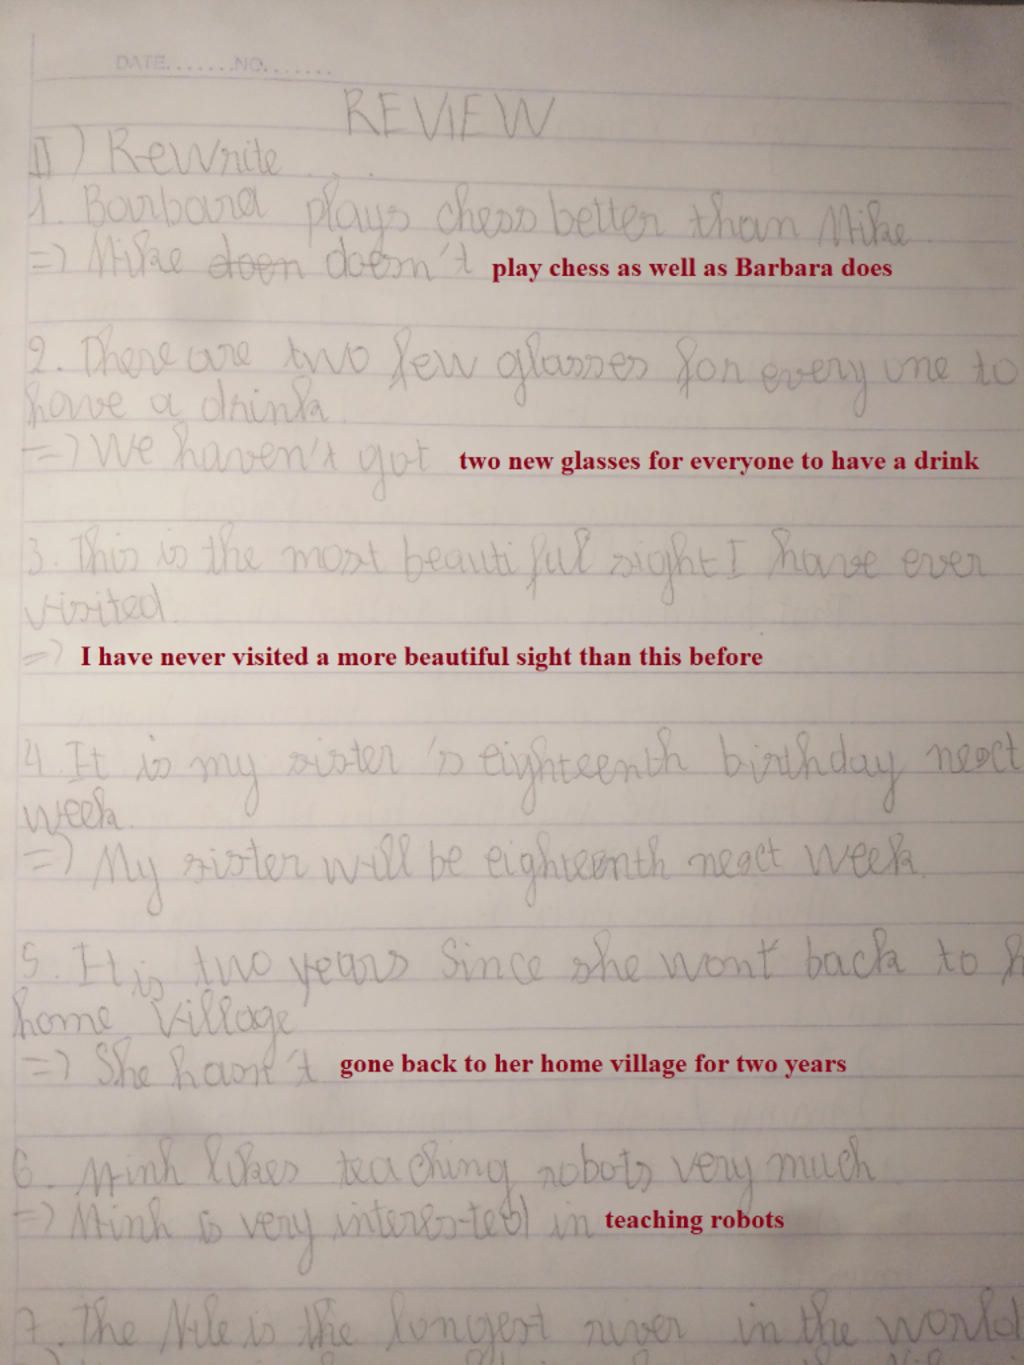 DATE.......NO.......
REVIEW
II) Rewrite...
1. Barbara plays chess better than Mike
=> Mike doen doesn't play chess as well as Barbara does
2. There are two few glasses for every one to
have a drink.
=> We haven't got two new glasses for everyone to have a drink
3. This is the most beautiful sight I have ever
visited.
=> I have never visited a more beautiful sight than this before
4. It is my sister 's eighteenth birthday next
week.
=> My sister will be eighteenth next week.
5. It is two years since she won't back to h
home village
=> She hasn't gone back to her home village for two years
6. Minh likes teaching robots very much
=> Minh is very interes-ted in teaching robots
7. The Nile is the longest river in the world